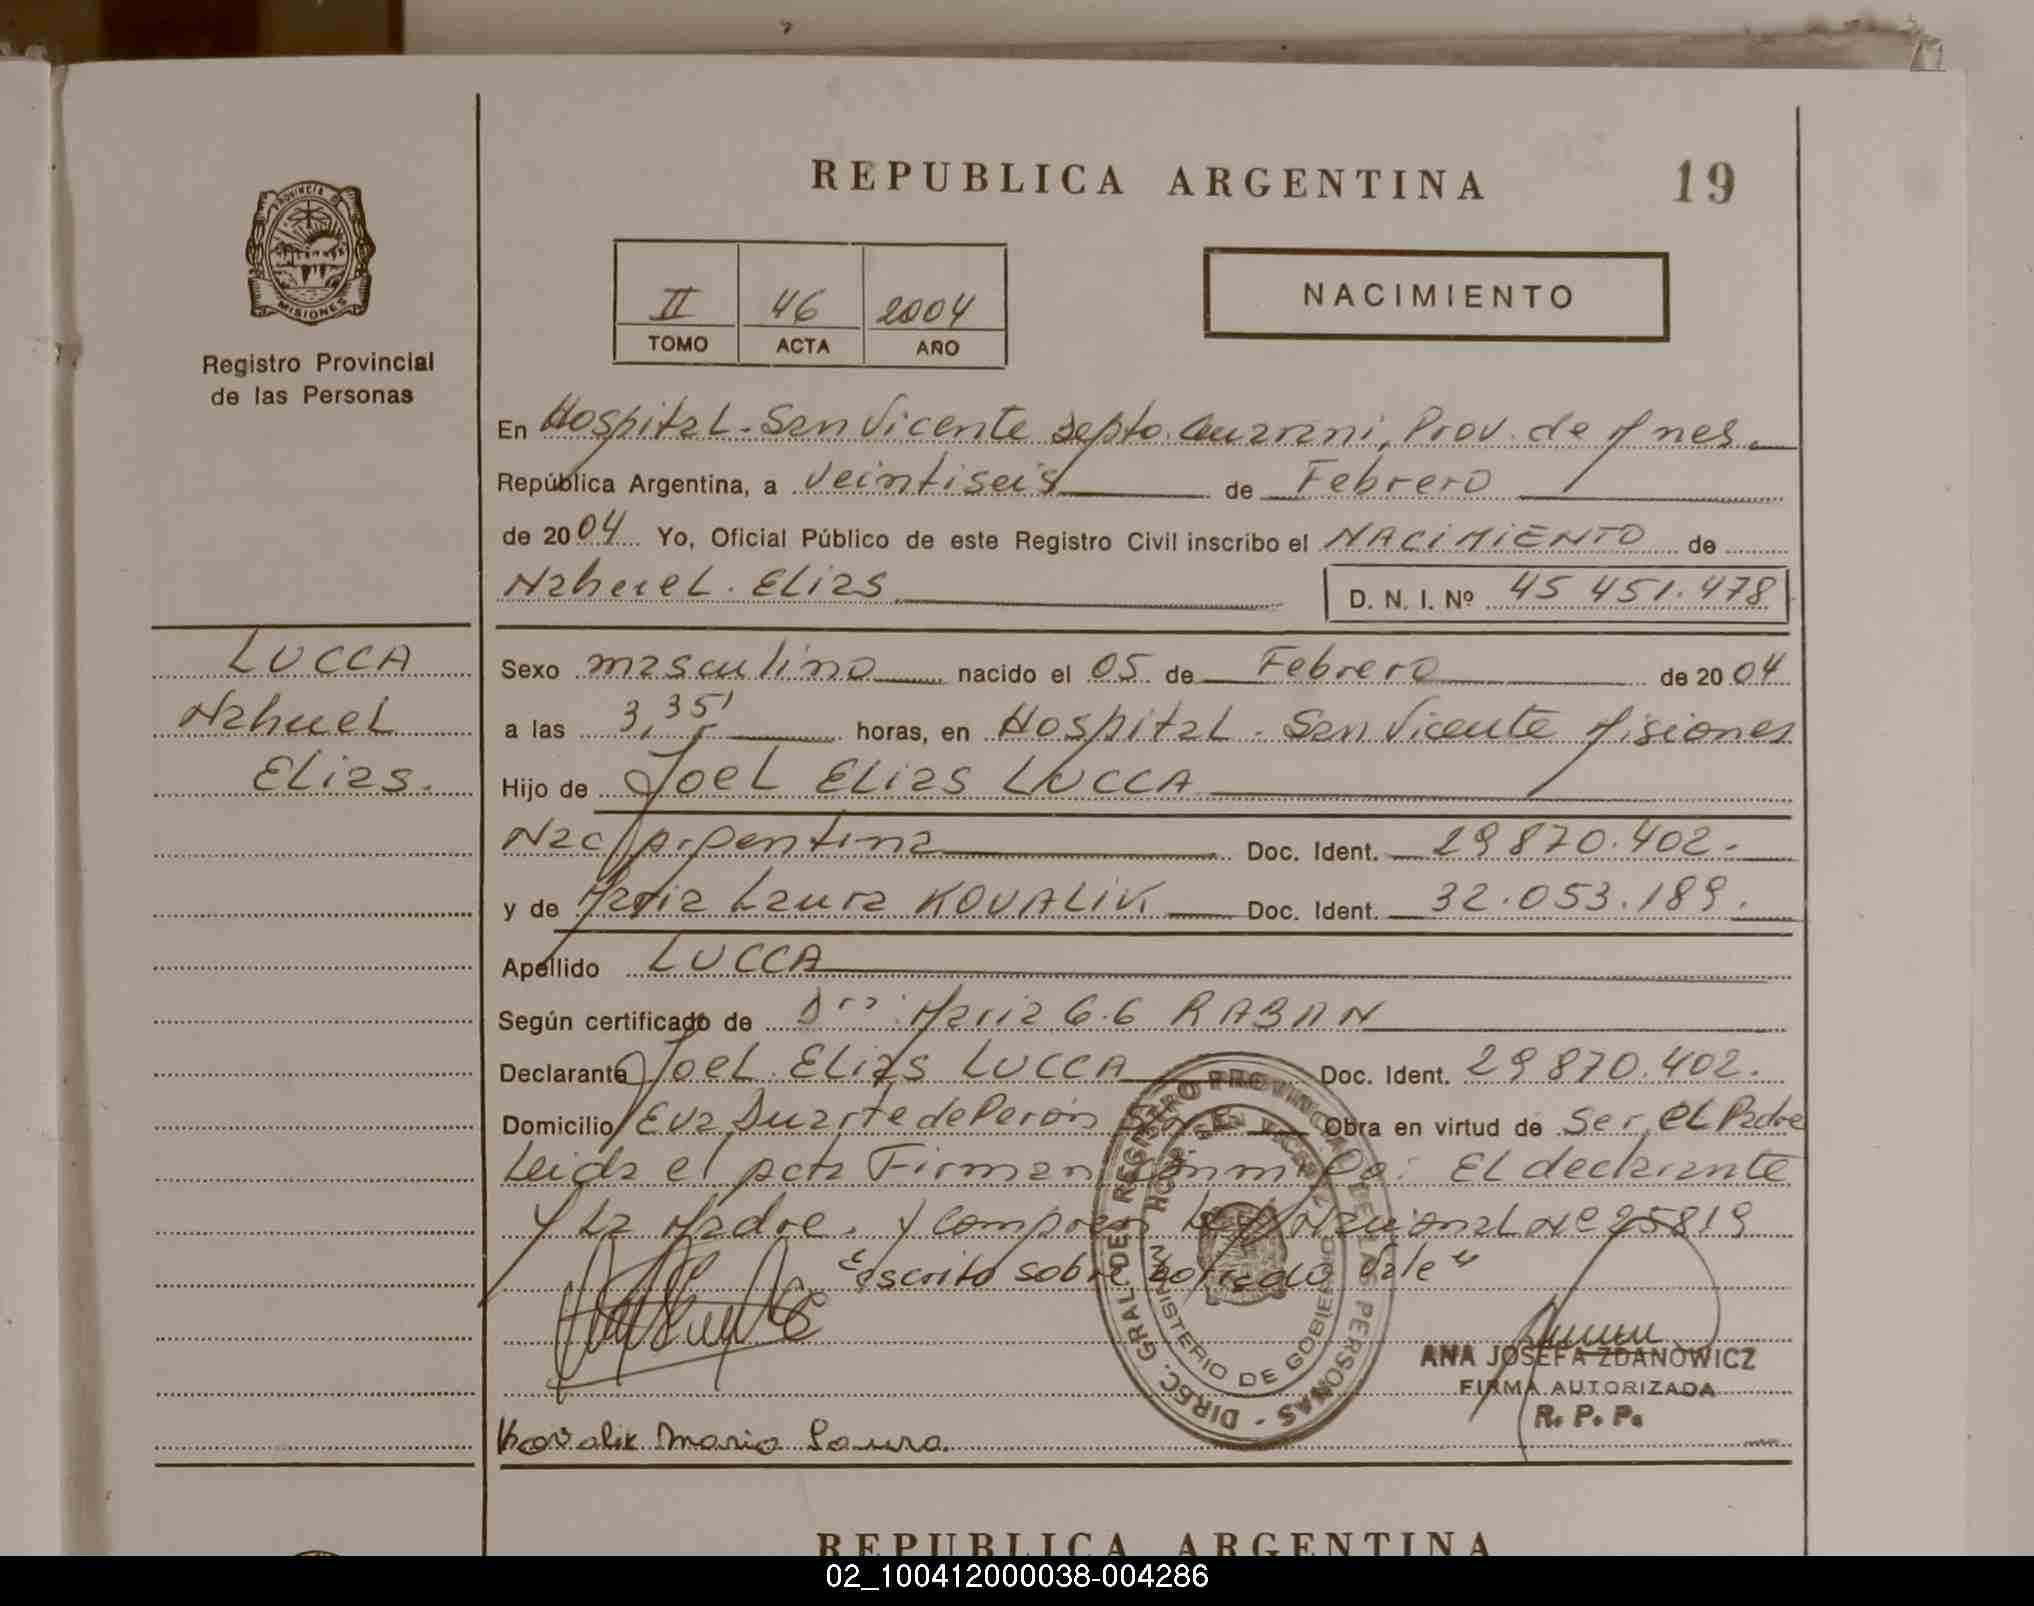 REPUBLICA ARGENTINA
19
PROVINCIA DE
MISIONES
Registro Provincial
de las Personas
II 46 2004
TOMO ACTA AÑO
NACIMIENTO
En Hospital - San Vicente Depto. Guarani, Prov. de Mnes.
República Argentina, a veintiseis de Febrero
de 2004 Yo, Oficial Público de este Registro Civil inscribo el NACIMIENTO de
Nahuel Elias D. N. I. Nº 45 451.478
LUCCA
Nahuel
Elias.
Sexo masculino nacido el 05 de Febrero de 2004
a las 3,35' horas, en Hospital - San Vicente Misiones
Hijo de Joel Elias LUCCA
Nac/ Argentina Doc. Ident. 29870.402.
y de Maria Laura KOVALIK Doc. Ident. 32.053.189.
Apellido LUCCA
Según certificado de Dra: Maria G.G RABAN
Declarante Joel Elias LUCCA Doc. Ident. 29870.402.
Domicilio Eva Duarte de Perón Obra en virtud de Ser el Padre
Leida el acta Firman conmigo: El declarante
y La Madre. y Ley Nacional Nº 25819
"escrito sobre borrado Vale"
DIREC. GRAL DEL REGISTRO PROVINCIAL DE LAS PERSONAS
MINISTERIO DE GOBIERNO
HOSP. SAN VICENTE
ANA JOSEFA ZDANOWICZ
FIRMA AUTORIZADA
R. P. P.
Kovalik Maria Laura
REPUBLICA ARGENTINA
02_100412000038-004286